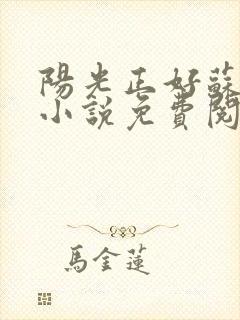 陽光正好蘇
小說免費閱
馬金蓮